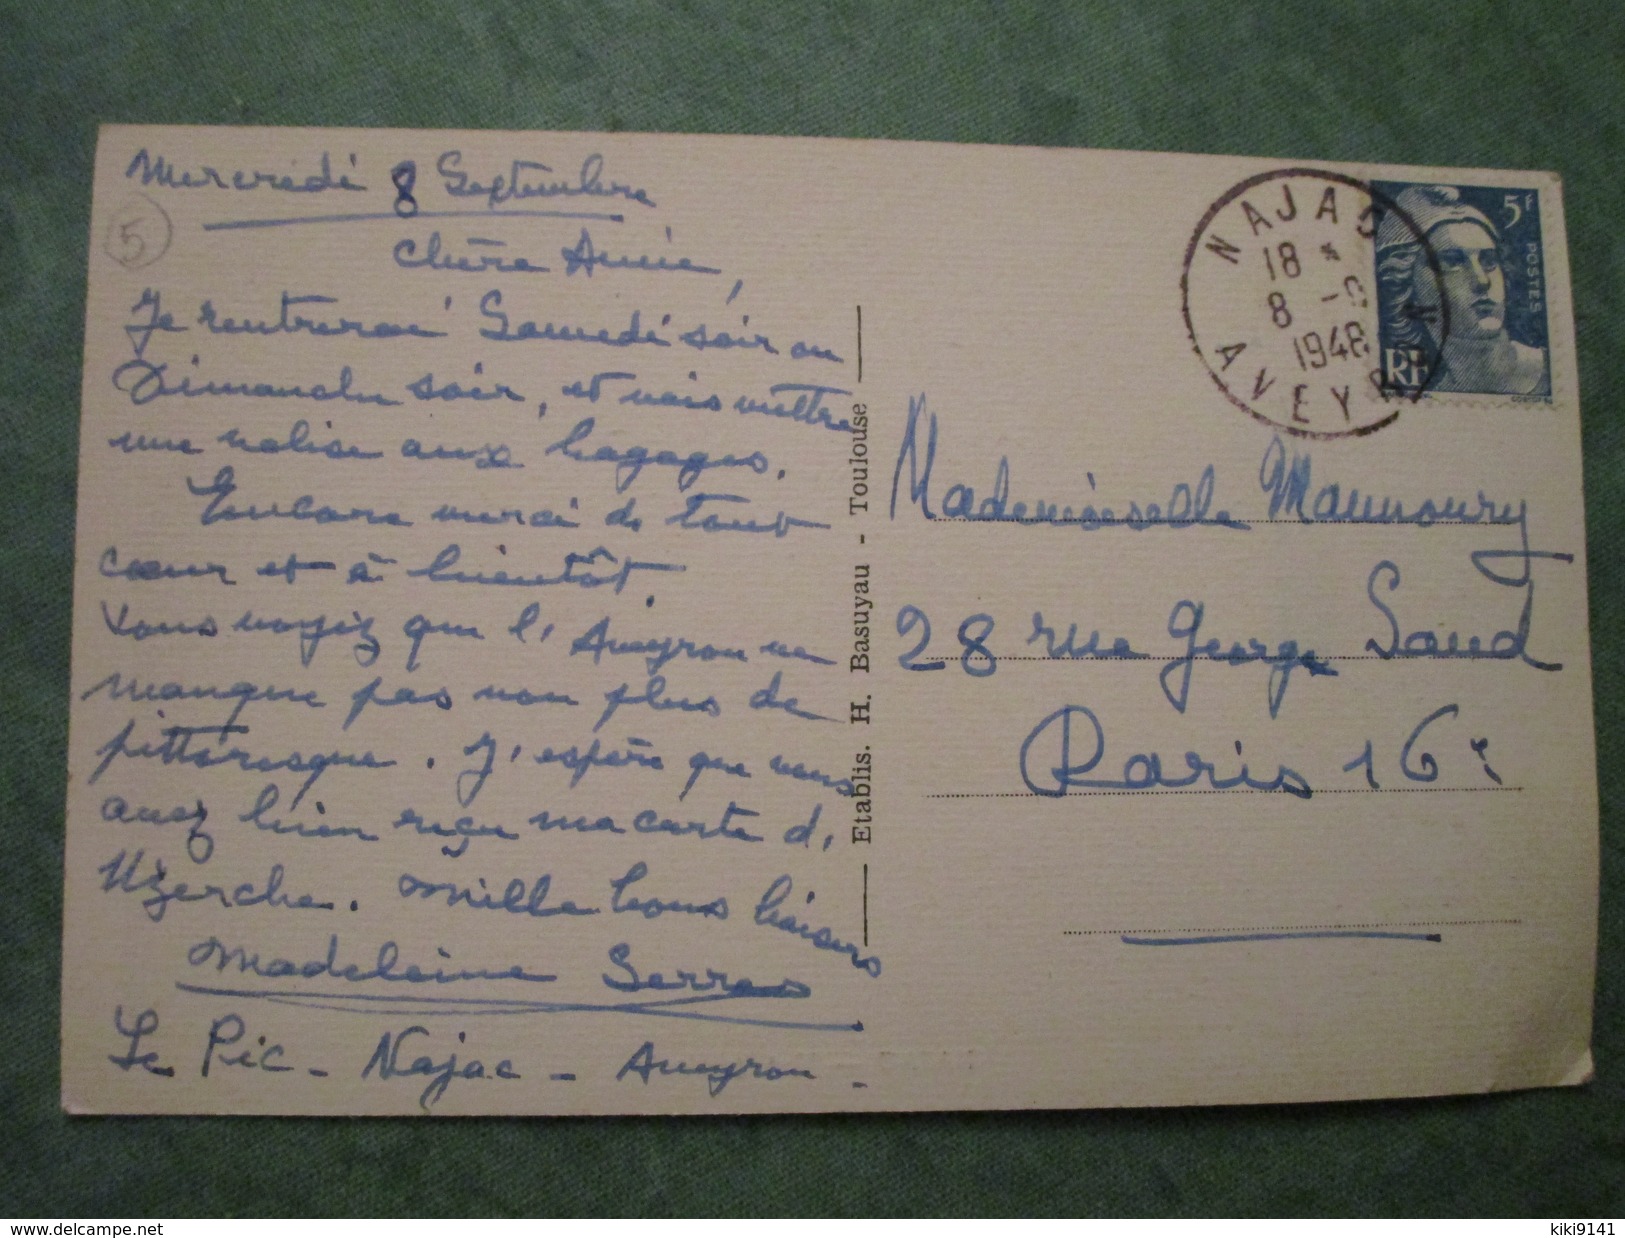 Mercredi 8 Septembre
5
Chère Annie,
Je rentrerai Samedi soir ou
Dimanche soir, et vais mettre
une valise aux bagages.
Encore merci de tout
cœur et à bientôt.
Vous voyez que l'Aveyron ne
manque pas non plus de
pittoresque. J'espère que vous
avez bien reçu ma carte d'
Uzerche. Mille bons baisers
Madeleine Serres
Le Pic - Najac - Aveyron -
Etablis. H. Basuyau - Toulouse
NAJAC
18 *
8 - 9
1948
AVEYRON
5F
POSTES
RF
Mademoiselle Maunoury
28 rue George Sand
Paris 16e
www.delcampe.net
kiki9141